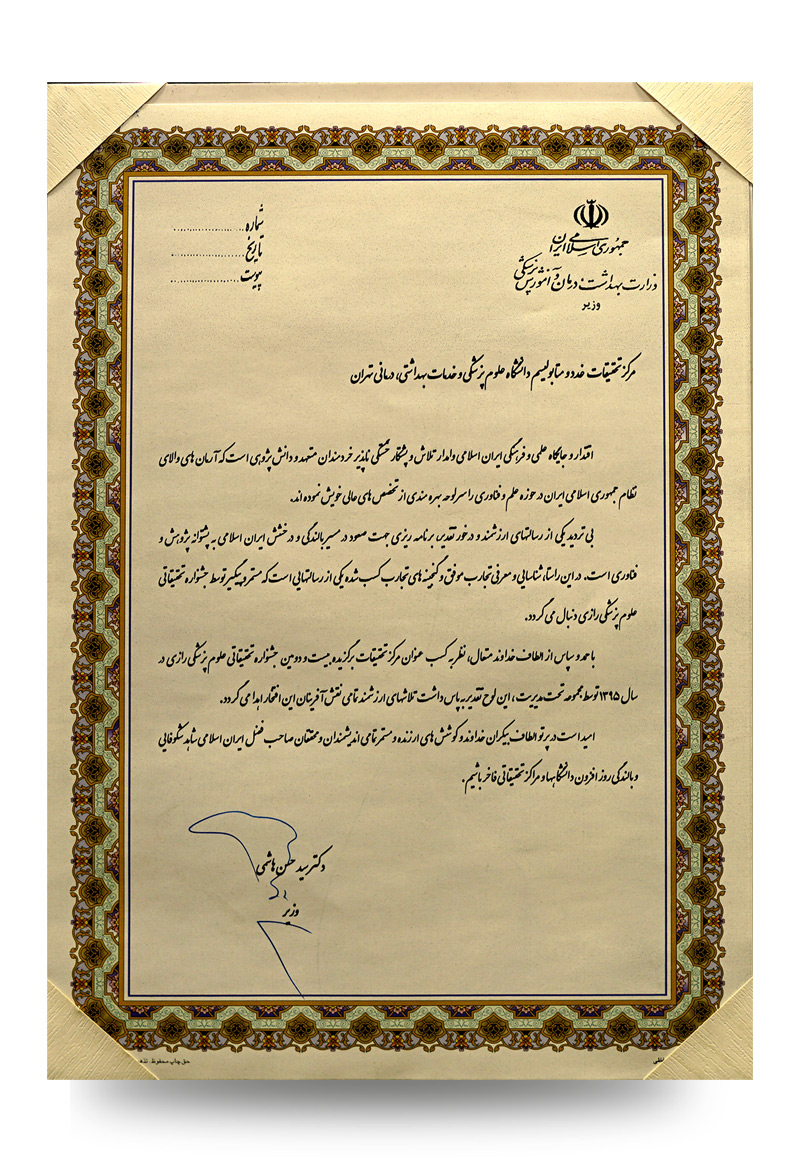 جمهوری اسلامی ایران
وزارت بهداشت، درمان و آموزش پزشکی
وزیر
شماره
تاریخ
پیوست
مرکز تحقیقات غدد و متابولیسم دانشگاه علوم پزشکی و خدمات بهداشتی، درمانی تهران
اقتدار و جایگاه علمی و فرهنگی ایران اسلامی وامدار تلاش و پشتکار خستگی ناپذیر خردمندان متعهد و دانش پژوهی است که آرمان های والای
نظام جمهوری اسلامی ایران در حوزه علم و فناوری را سرلوحه بهره مندی از تخصص های عالی خویش نموده اند.
بی تردید یکی از رسالتهای ارزشمند و درخور تقدیر، برنامه ریزی جهت صعود در مسیر بالندگی و درخشش ایران اسلامی به پشتوانه پژوهش و
فناوری است. در این راستا، شناسایی و معرفی تجارب موفق و گنجینه های تجارب کسب شده یکی از رسالتهایی است که مستمر و پیگیر توسط جشنواره تحقیقاتی
علوم پزشکی رازی دنبال می گردد.
با حمد و سپاس از الطاف خداوند متعال، نظر به کسب عنوان مرکز تحقیقات برگزیده بیست و دومین جشنواره تحقیقاتی علوم پزشکی رازی در
سال ۱۳۹۵ توسط مجموعه تحت مدیریت، این لوح تقدیر به پاس داشت تلاشهای ارزشمند تمامی نقش آفرینان این افتخار اهدا می گردد.
امید است در پرتو الطاف بیکران خداوند و کوشش های ارزنده و مستمر تمامی اندیشمندان و محققان صاحب فضل ایران اسلامی شاهد شکوفایی
و بالندگی روز افزون دانشگاهها و مراکز تحقیقاتی فاخر باشیم.
دکتر سید حسن هاشمی
وزیر
حق چاپ محفوظ